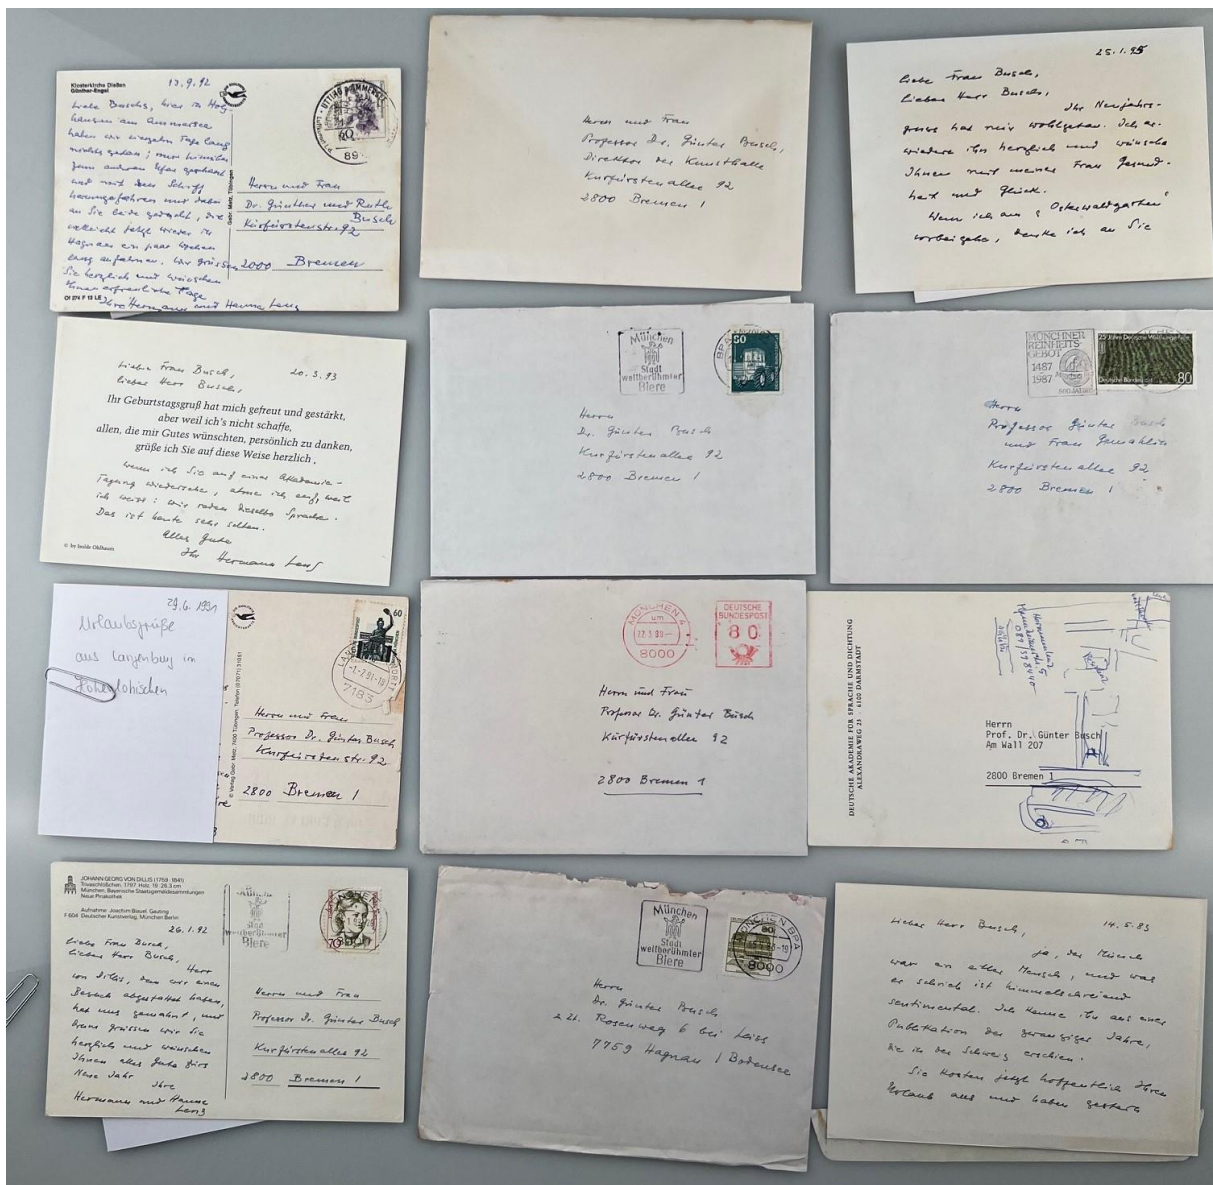 Klosterkirche Dießen
Günther-Engel
13.9.92
Liebe Buschs, hier in Holz-
hausen am Ammersee
haben wir vierzehn Tage lang
nichts getan; nur hinüber
zum anderen Ufer geschaut
und mit dem Schiff
herumgefahren und dabei
an Sie beide gedacht, die
vielleicht jetzt wieder in
Hagnau ein paar Wochen
lang aufatmen. Wir grüssen
Sie herzlich und wünschen
Ihnen erfreuliche Tage
Ihre Hermann und Hanne Lenz
Gebr. Metz, Tübingen
UTTING AMMERSEE
60
89
Herrn und Frau
Dr. Günther und Ruth
Busch
Kürfürstenstr. 92
2000 Bremen
Herrn und Frau
Professor Dr. Günter Busch,
Direktor der Kunsthalle
Kurfürstenallee 92
2800 Bremen 1
25.1.95
Liebe Frau Busch,
lieber Herr Busch,
Ihr Neujahrs-
gruss hat mir wohlgetan. Ich er-
wiedere ihn herzlich und wünsche
Ihnen mit meiner Frau Gesund-
heit und Glück.
Wenn ich am "Osterwaldgarten"
vorbeigehe, denke ich an Sie
Liebe Frau Busch,
20.3.93
lieber Herr Busch,
Ihr Geburtstagsgruß hat mich gefreut und gestärkt,
aber weil ich's nicht schaffe,
allen, die mir Gutes wünschten, persönlich zu danken,
grüße ich Sie auf diese Weise herzlich.
Wenn ich Sie auf einer Akademie-
Tagung wiedersehe, atme ich auf, weil
ich weiss: wir reden dieselbe Sprache.
Das ist heute sehr selten.
Alles Gute
Ihr Hermann Lenz
© by Isolde Ohlbaum
München
Stadt
weltberühmter
Biere
50
Herrn
Dr. Günter Busch
Kurfürstenallee 92
2800 Bremen 1
MÜNCHNER
REINHEITS-
GEBOT
1487
1987
Deutsche Bundespost
80
Herrn
Professor Günter Busch
und Frau Gemahlin
Kurfürstenallee 92
2800 Bremen 1
29.6.1991
Urlaubsgrüße
aus Langenburg im
Hohenlohischen
© Verlag Gebr. Metz, 7400 Tübingen, Telefon (07071) 31051
60
7183
Herrn und Frau
Professor Dr. Günter Busch
Kurfürstenstr. 92
2800 Bremen 1
MÜNCHEN 4
um
8000
DEUTSCHE
BUNDESPOST
80
Herrn und Frau
Professor Dr. Günter Busch
Kürfürstenallee 92
2800 Bremen 1
DEUTSCHE AKADEMIE FÜR SPRACHE UND DICHTUNG
ALEXANDRAWEG 23 · 6100 DARMSTADT
Herrn
Prof. Dr. Günter Busch
Am Wall 207
2800 Bremen 1
JOHANN GEORG VON DILLIS (1759-1841)
Trivaschlößchen. 1797 Holz, 19:26,3 cm
München, Bayerische Staatsgemäldesammlungen
Neue Pinakothek
Aufnahme: Joachim Blauel, Gauting
F 604 Deutscher Kunstverlag, München Berlin
26.1.92
Liebe Frau Busch,
lieber Herr Busch,
Herr
von Dillis, dem wir einen
Besuch abgestattet haben,
hat uns gemahnt, und
drum grüssen wir Sie
herzlich und wünschen
Ihnen alles Gute fürs
Neue Jahr
Ihre
Hermann und Hanne
Lenz
Stadt
weltberühmter
Biere
Herrn und Frau
Professor Dr. Günter Busch
Kurfürstenallee 92
2800 Bremen 1
München
Stadt
weltberühmter
Biere
80
MÜNCHEN BPA
8000
Herrn
Dr. Günter Busch
z. Zt. Rosenweg 6 bei Leiss
7759 Hagnau / Bodensee
Lieber Herr Busch,
14.5.83
ja, der Münch
war an eller Mensch, und was
er schrieb ist himmelschreiend
sentimental. Ich kenne ihn aus einer
Publikation der zwanziger Jahre,
die in der Schweiz erschien.
Sie kosten jetzt hoffentlich Ihren
Urlaub aus und haben gestern